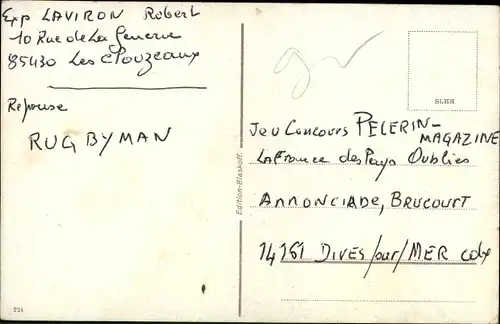 Exp LAVIRON Robert
10 Rue de La
85430 Les Clouzeaux
Reponse
RUGBYMAN
224
Edition-Blaskoff.
Jeu Concours PELERIN-
MAGAZINE
La France des Pays Oubliés
ANNONCIADE, BRUCOURT
14161 DIVES/sur/MER cdx